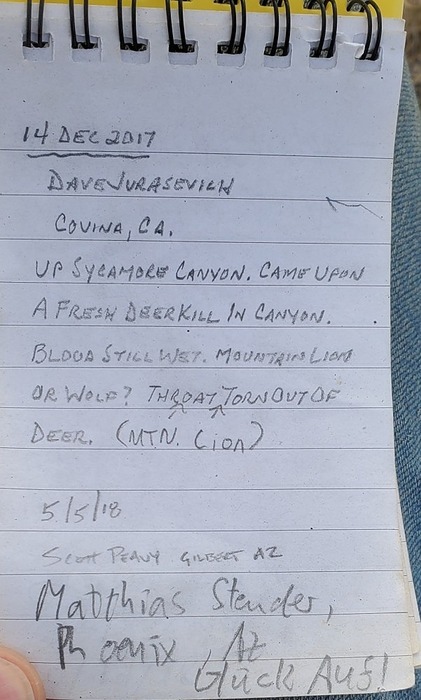 14 DEC 2017
DAVE JURASEVICH
COVINA, CA.
UP SYCAMORE CANYON. CAME UPON
A FRESH DEER KILL IN CANYON.
BLOOD STILL WET. MOUNTAIN LION
OR WOLF? THROAT TORN OUT OF
DEER. (MTN. LION)
5/5/18
SCOTT PEAVY GILBERT AZ
Matthias Stender,
Phoenix, Az
Glück Auf!